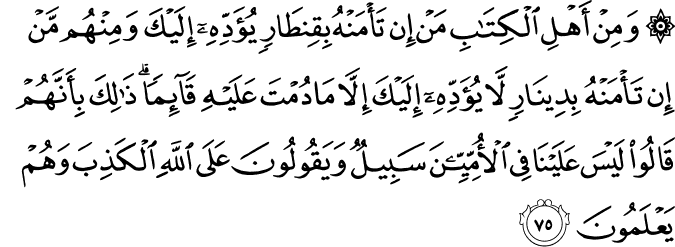 ۞ وَمِنۡ أَهۡلِ ٱلۡكِتَٰبِ مَنۡ إِن تَأۡمَنۡهُ بِقِنطَارٖ يُؤَدِّهِۦٓ إِلَيۡكَ وَمِنۡهُم مَّنۡ
إِن تَأۡمَنۡهُ بِدِينَارٖ لَّا يُؤَدِّهِۦٓ إِلَيۡكَ إِلَّا مَا دُمۡتَ عَلَيۡهِ قَآئِمٗاۗ ذَٰلِكَ بِأَنَّهُمۡ
قَالُواْ لَيۡسَ عَلَيۡنَا فِي ٱلۡأُمِّيِّـۧنَ سَبِيلٞ وَيَقُولُونَ عَلَى ٱللَّهِ ٱلۡكَذِبَ وَهُمۡ
يَعۡلَمُونَ ٧٥